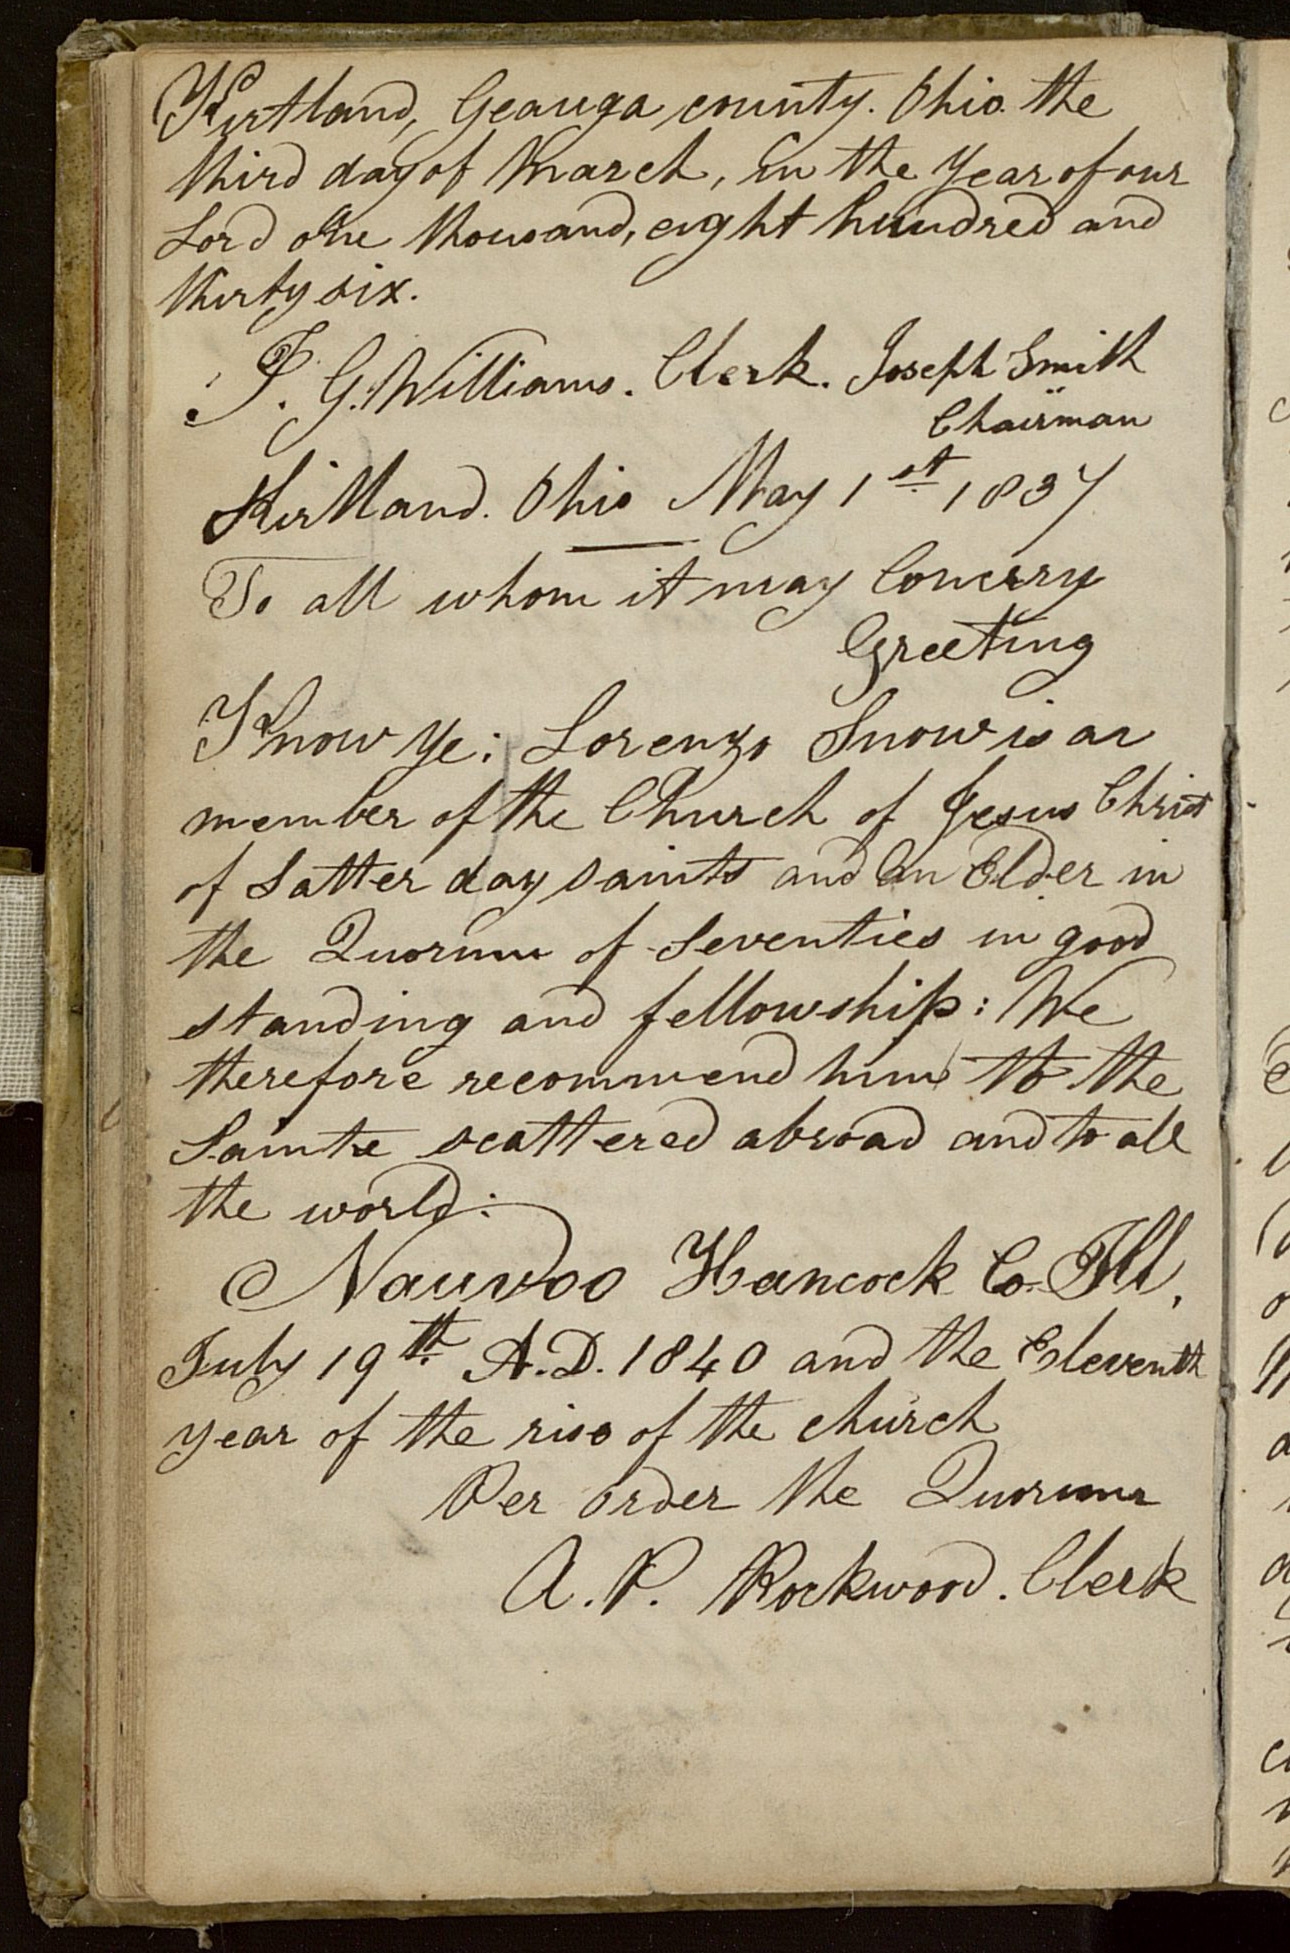 Kirtland, Geauga county. Ohio. the
third day of March, in the Year of our
Lord one thousand, eight hundred and
thirty six.
F. G. Williams. Clerk. Joseph Smith
Chairman
Kirtland. Ohio May 1st 1837
To all whom it may Concern
Greeting
Know Ye: Lorenzo Snow is an
member of the Church of Jesus Christ
of Latter day saints and an Elder in
the Quorum of Seventies in good
standing and fellowship: We
therefore recommend him to the
Saints scattered abroad and to all
the world:
Nauvoo Hancock Co. Ill,
July 19th A.D. 1840 and the Eleventh
year of the rise of the church
Per order the Quorum
A. P. Rockwood. Clerk